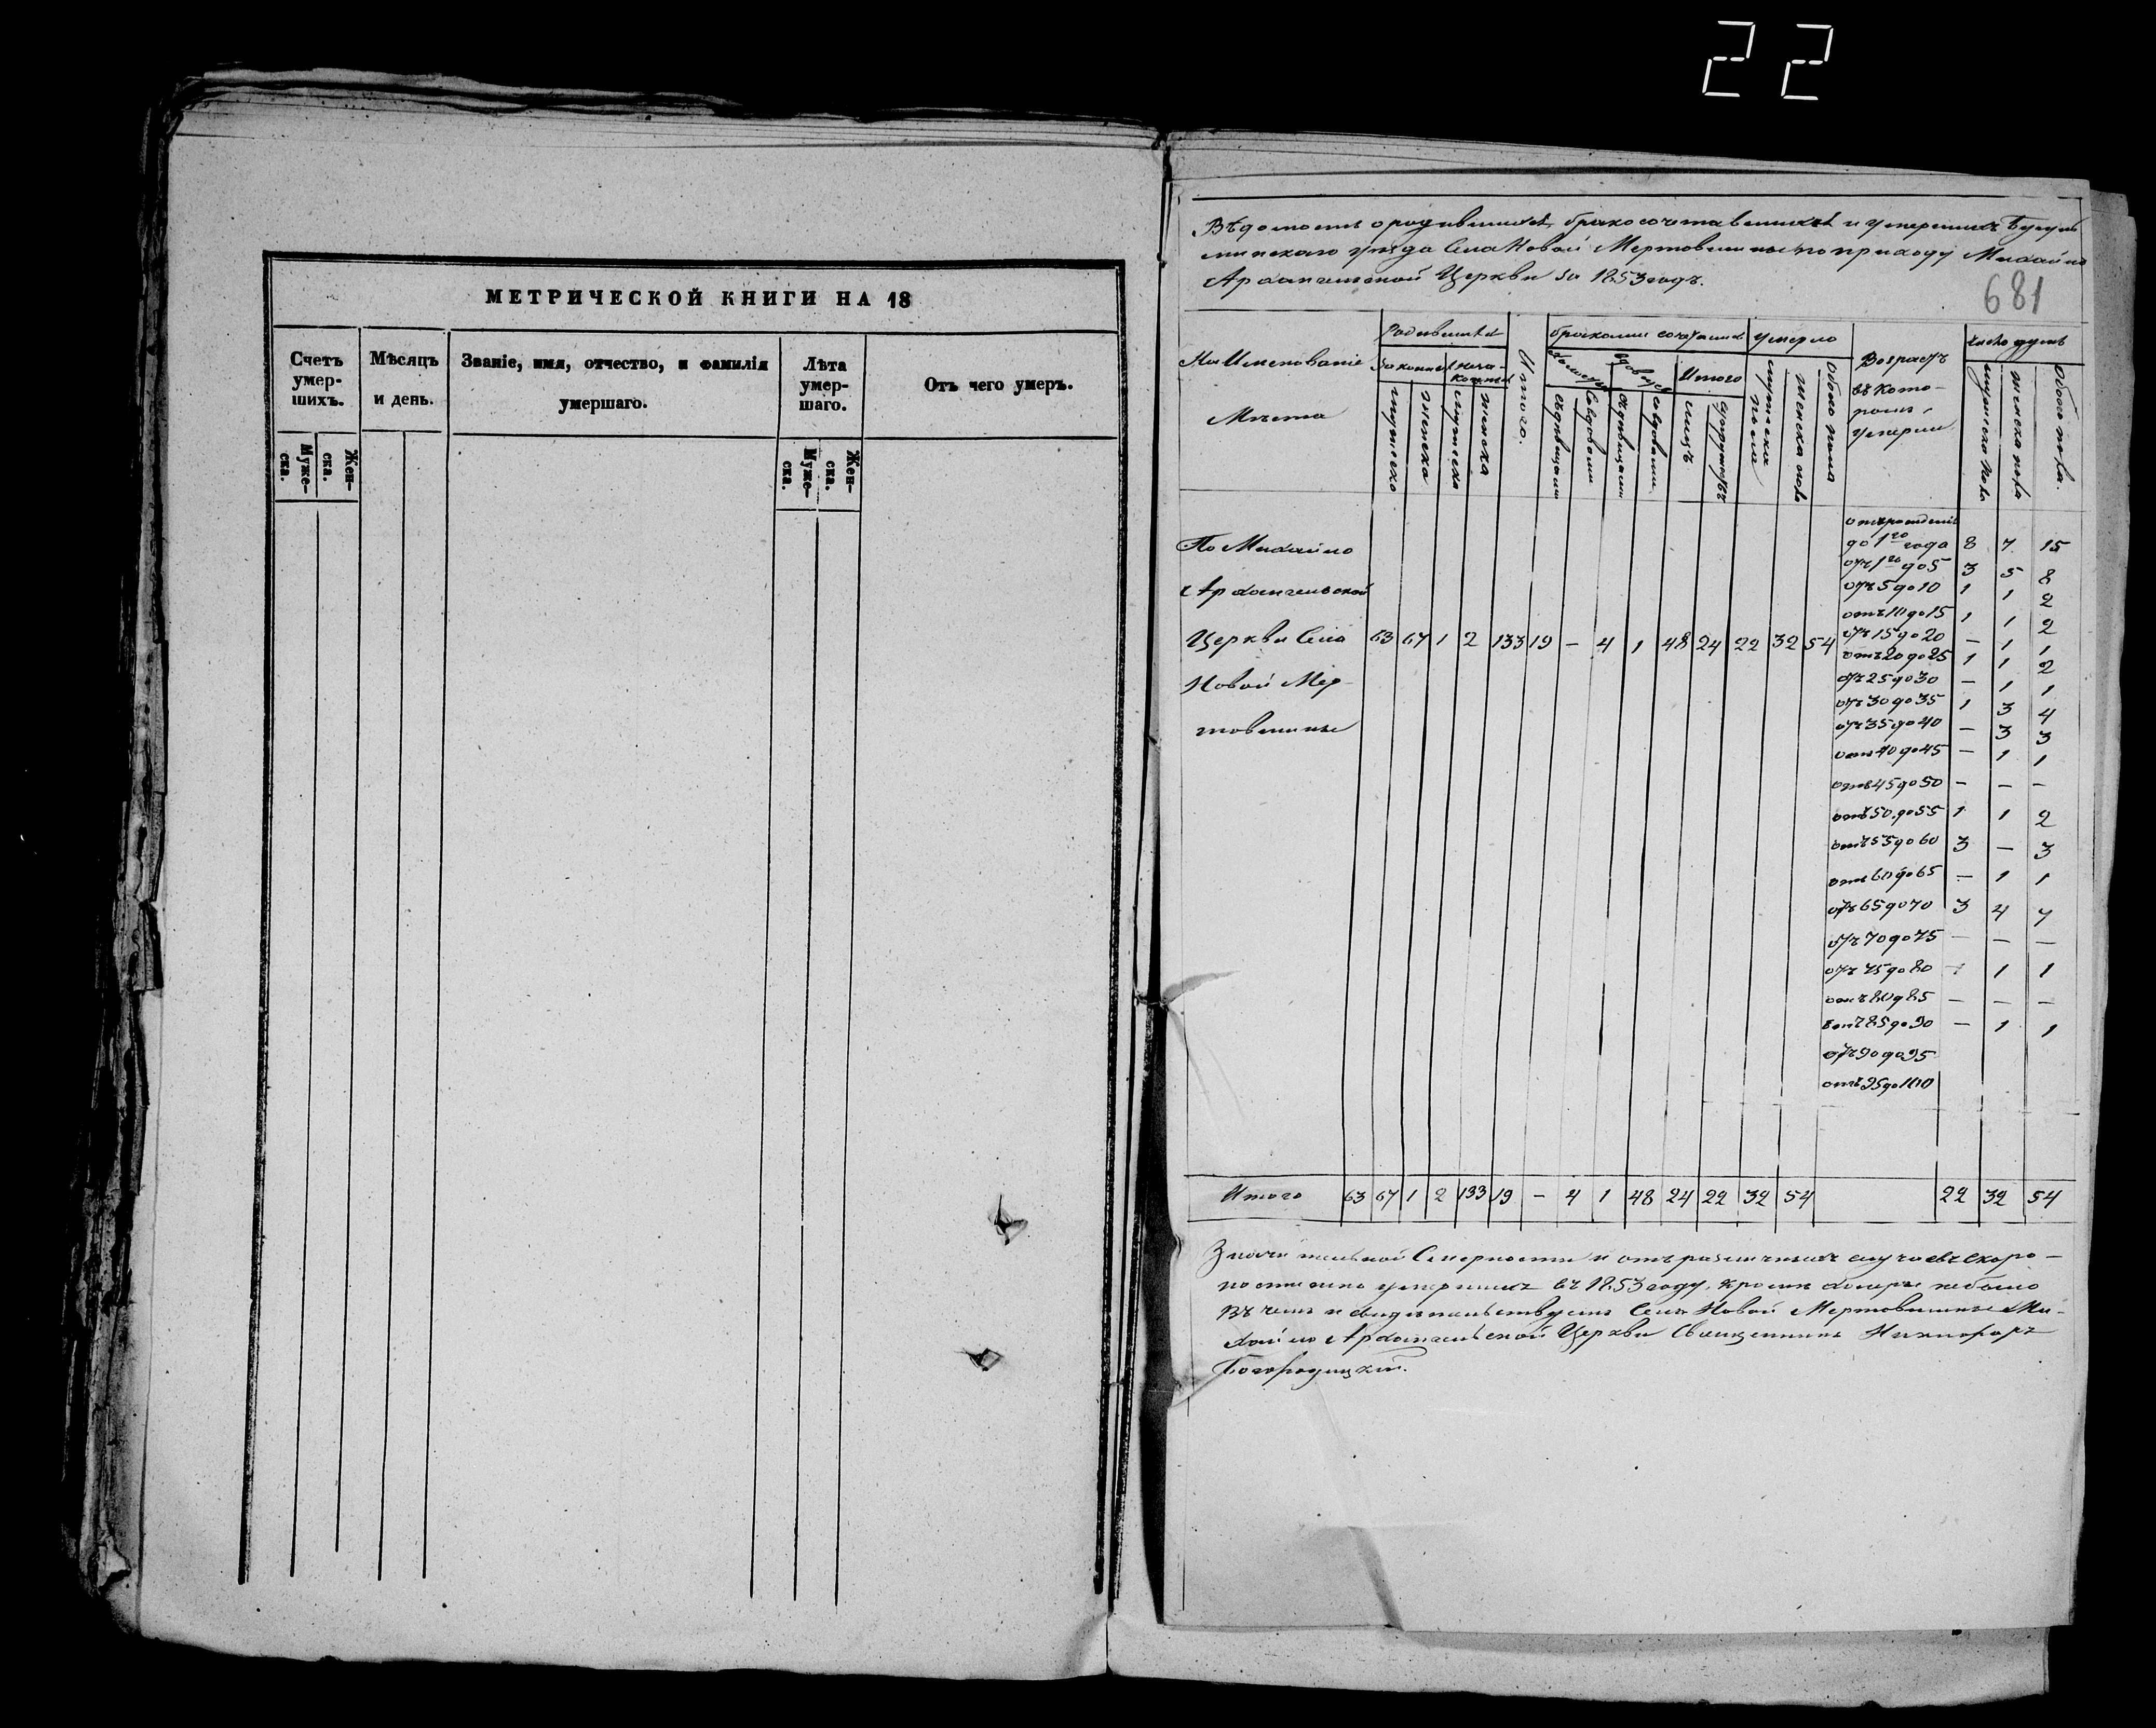 22
МЕТРИЧЕСКОЙ КНИГИ НА 18
Счетъ умер-шихъ.
Мѣсяцъ и день.
Званіе, имя, отчество, и фамилія умершаго.
Лѣта умер-шаго.
Отъ чего умеръ.
Муже-ска.
Жен-ска.
Муже-ска.
Жен-ска.
Вѣдомость о родившихся, бракосочетавшихся и умершихъ Бугуль
минскаго уѣзда Села Новой Мертовщины по приходу Михайло
Архангельской Церкви за 1853 годъ.
681
Наименованіе Мѣста
Родившихся
Законныхъ
Незаконныхъ
мужеска
женска
мужеска
женска
Итого.
Итого
умерло
женска пола
обоего пола
Возрастъ
въ кото-
ромъ
умерли
число душъ
мужеска пола
женска пола
обоего пола.
По Михайло
Архангельской
Церкви Села 63 67 1 2 133 19 – 4 1 48 24 22 32 54
Новой Мер-
товщины
отъ рожденія
до 1го года 8 7 15
отъ 1го до 5 3 5 8
отъ 5 до 10 1 1 2
отъ 10 до 15 1 1 2
отъ 15 до 20 – 1 1
отъ 20 до 25 1 1 2
отъ 25 до 30 – 1 1
отъ 30 до 35 1 3 4
отъ 35 до 40 – 3 3
отъ 40 до 45 – 1 1
отъ 45 до 50 – – –
отъ 50 до 55 1 1 2
отъ 55 до 60 3 – 3
отъ 60 до 65 – 1 1
отъ 65 до 70 3 4 7
отъ 70 до 75 – – –
отъ 75 до 80 – 1 1
отъ 80 д 85 – – –
отъ 85 до 90 – 1 1
отъ 90 до 95
отъ 95 до 100
Итого 63 67 1 2 133 19 – 4 1 48 24 22 32 54 22 32 54
Значительной Смертности и отъ различныхъ случаевъ скоро-
постижно умершихъ въ 1853 году, кромѣ холеры не было
въ чемъ и свидѣтельствуемъ Села Новой Мертовщины Ми-
хайло Архангельской Церкви Священникъ Никифоръ
Богородицкій.